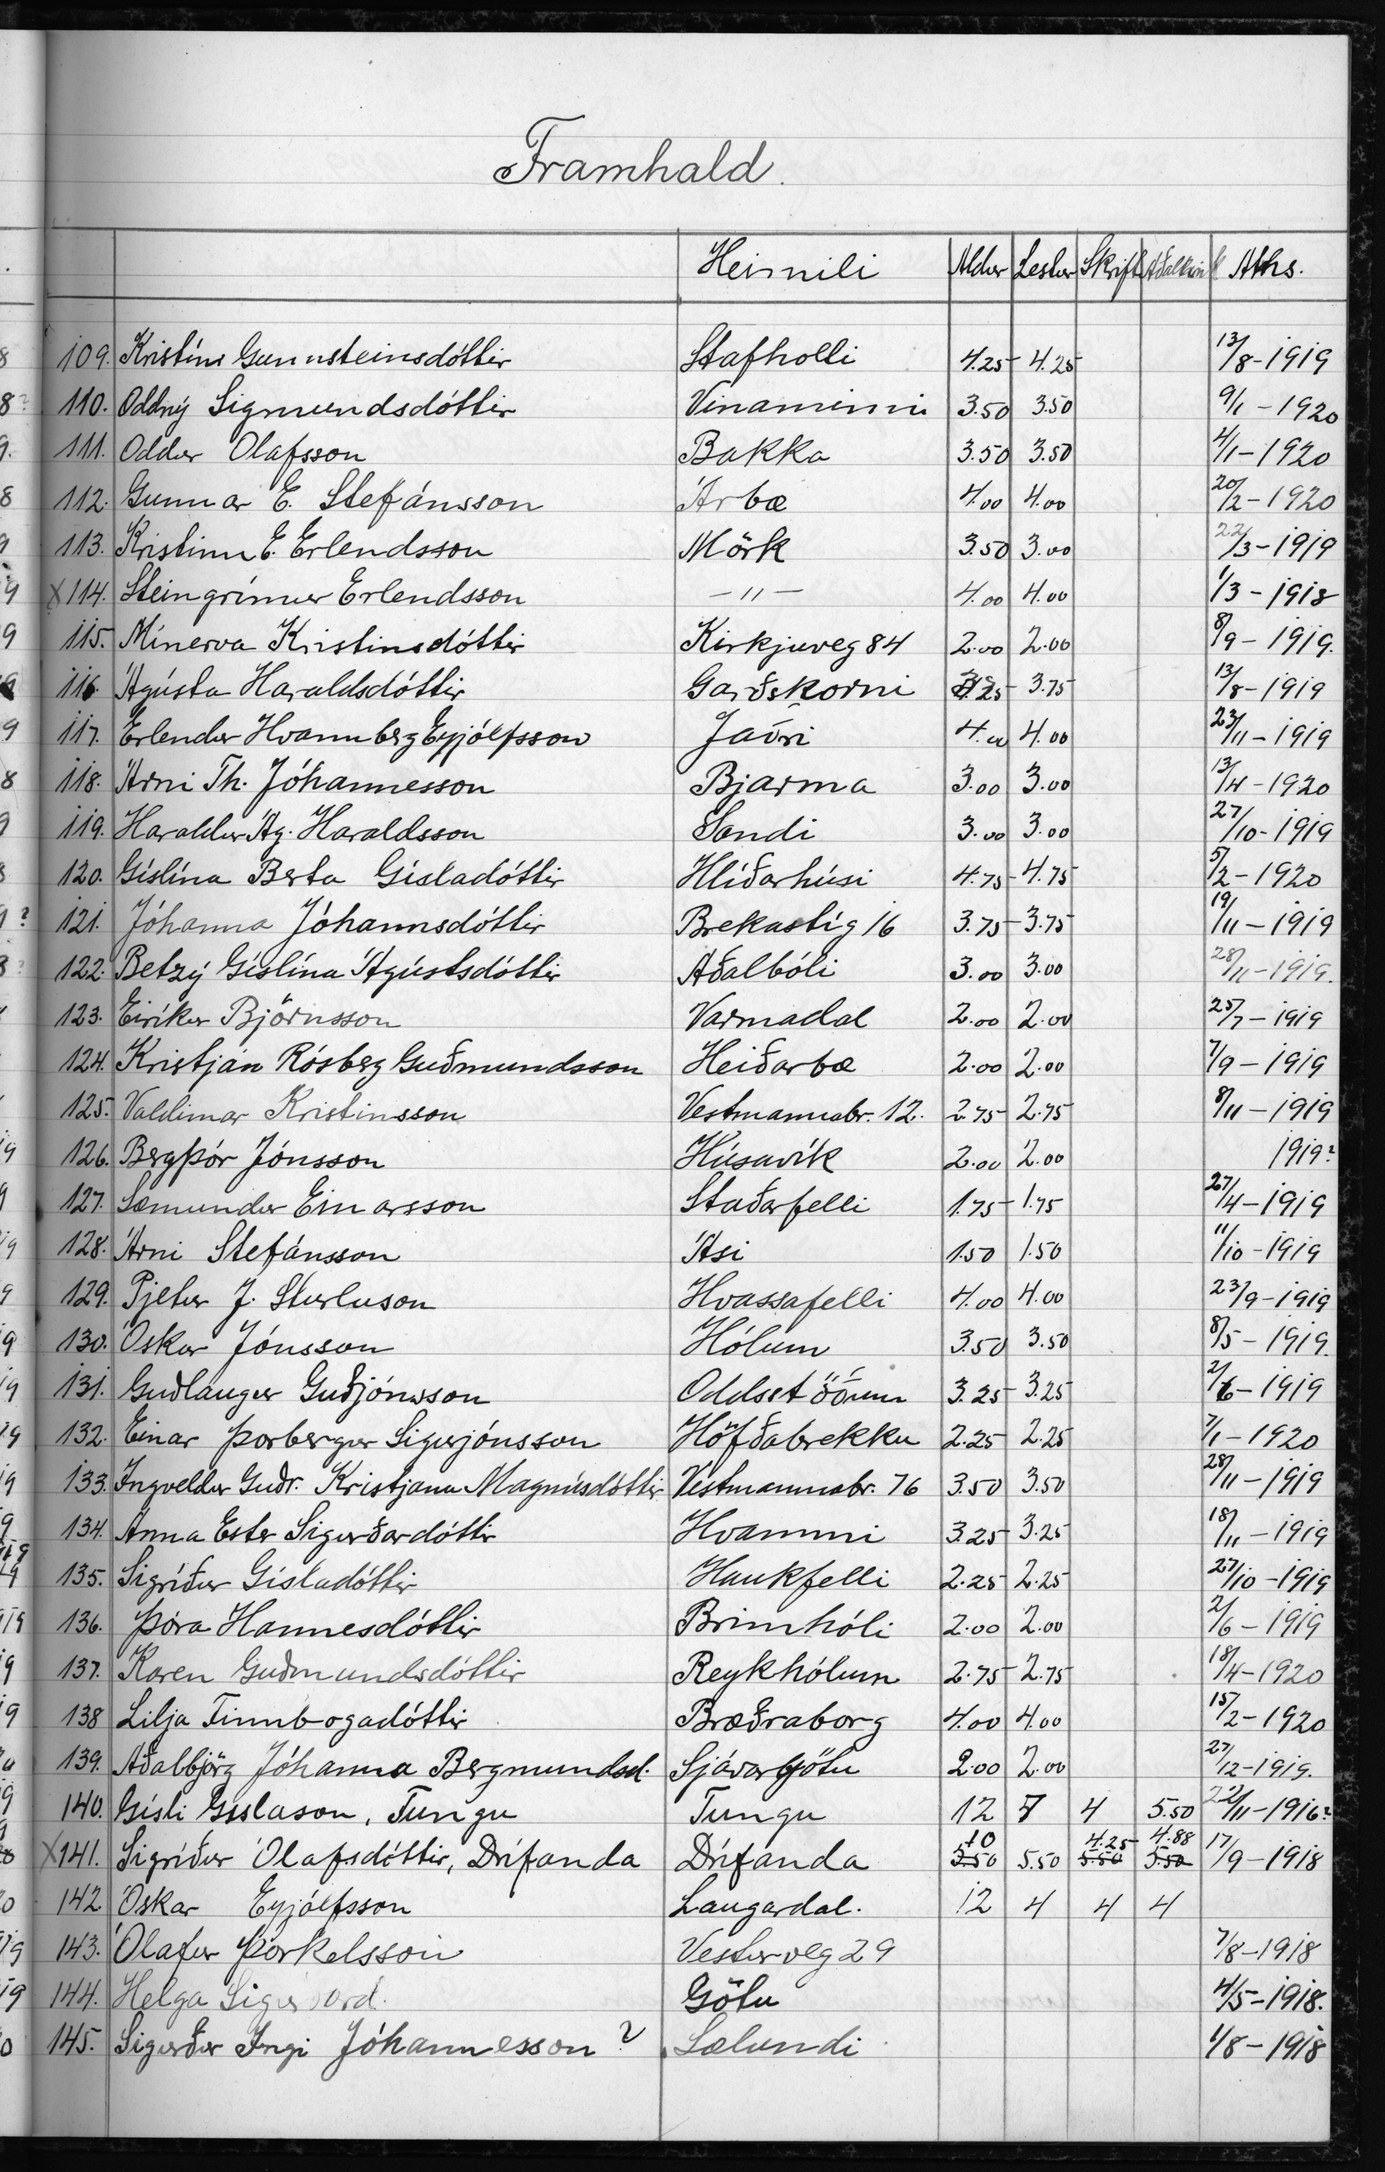 Framhald.
Heimili Aldur Lestur Skrift Aðaleink Aths.
109. Kristín Gunnsteinsdóttir Stafholti 4.25 4.25 13/8-1919
110. Oddný Sigmundsdóttir Vinaminni 3.50 3.50 9/1-1920
111. Oddur Olafsson Bakka 3.50 3.50 4/1-1920
112. Gunnar E. Stefánsson Árbæ 4.00 4.00 20/2-1920
113. Kristinn E. Erlendsson Mörk 3.50 3.00 22/3-1919
X 114. Steingrímur Erlendsson -"- 4.00 4.00 1/3-1918
115. Mínerva Kristinsdóttir Kirkjuveg 84 2.00 2.00 8/9-1919.
116. Ágústa Haraldsdóttir Garðshorni 3.75 13/8-1919
117. Erlendur Hvannberg Eyjólfsson Jaðri 4.00 4.00 23/11-1919
118. Árni Th. Jóhannesson Bjarma 3.00 3.00 13/4-1920
119. Haraldur Ág. Haraldsson Sandi 3.00 3.00 27/10-1919
120. Gíslína Berta Gísladóttir Hlíðarhúsi 4.75 4.75 5/2-1920
121. Jóhanna Jóhannsdóttir Brekastíg 16 3.75 3.75 19/11-1919
122. Betzý Gíslína Ágústsdóttir Aðalbóli 3.00 3.00 28/11-1919.
123. Eiríkur Björnsson Varmadal 2.00 2.00 25/7-1919
124. Kristján Rósberg Guðmundsson Heiðarbæ 2.00 2.00 7/9-1919
125. Valdimar Kristinsson Vestmannabr. 12. 2.75 2.75 8/11-1919
126. Bergþór Jónsson Húsavík 2.00 2.00 1919?
127. Sæmundur Einarsson Staðarfelli 1.75 1.75 27/4-1919
128. Árni Stefánsson Ási 1.50 1.50 11/10-1919
129. Pjetur J. Sturluson Hvassafelli 4.00 4.00 23/9-1919
130. Óskar Jónsson Hólum 3.50 3.50 8/5-1919.
131. Guðlaugur Guðjónsson Oddsstöðum 3.25 3.25 2/6-1919
132. Einar Þorbergur Sigurjónsson Höfðabrekku 2.25 2.25 7/1-1920
133. Ingveldur Guðr. Kristjana Magnúsdóttir Vestmannabr. 76 3.50 3.50 28/11-1919
134. Anna Ester Sigurðardóttir Hvammi 3.25 3.25 18/11-1919
135. Sigríður Gísladóttir Haukfelli 2.25 2.25 27/10-1919
136. Þóra Hannesdóttir Brimhóli 2.00 2.00 2/6-1919
137. Karen Guðmundsdóttir Reykhólum 2.75 2.75 18/4-1920
138 Lilja Finnbogadóttir Bræðraborg 4.00 4.00 15/2-1920
139. Aðalbjörg Jóhanna Bergmundsd. Sjávargötu 2.00 2.00 27/12-1919.
140. Gísli Gíslason, Tungu Tungu 12 7 4 5.50 22/11-1916?
10 4.25 4.88
X 141. Sigríður Ólafsdóttir, Drífanda Drífanda 5.50 5.50 5.50 5.50 17/9-1918
142 Óskar Eyjólfsson Laugardal. 12 4 4 4
143. Ólafur Þorkelsson Vesturveg 29 7/8-1918
144. Helga Sigurðard. Götu 4/5-1918.
145. Sigurður Ingi Jóhannesson? Sælundi 1/8-1918